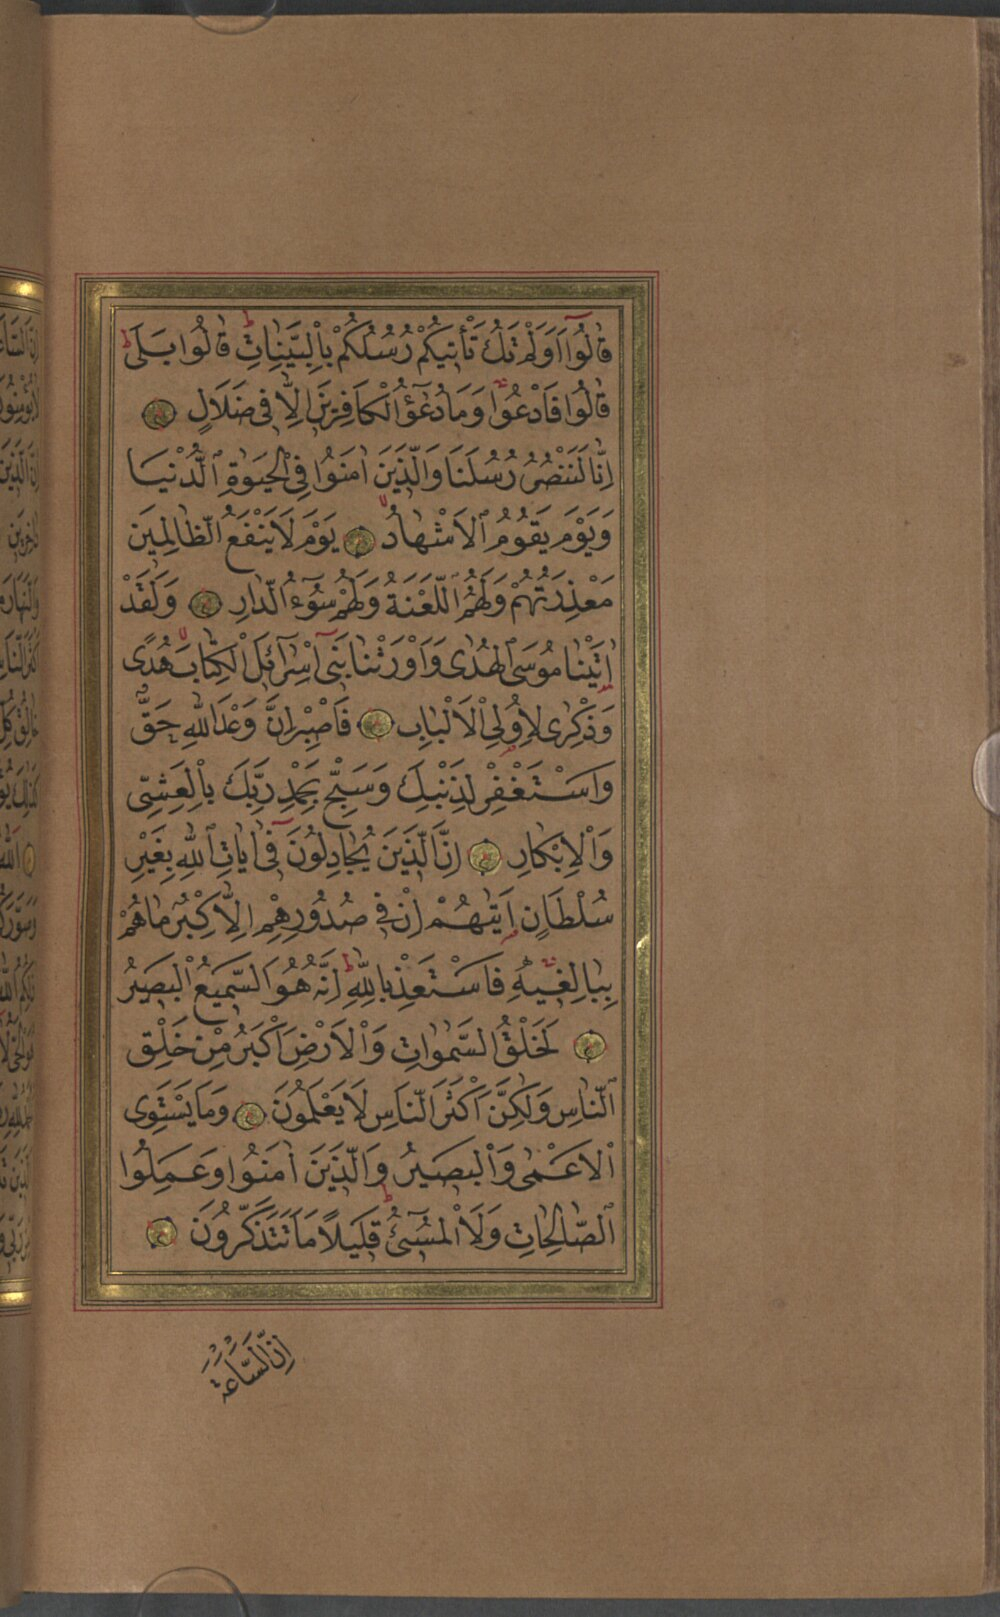 قَالُوٓا اَوَلَمْ تَكُ تَأْتِيكُمْ رُسُلُكُمْ بِالْبَيِّنَاتِ ط قَالُوا بَلٰى ط
قَالُوا فَادْعُوا وَمَا دُعٰٓؤُا الْكَافِرِينَ اِلَّا فِى ضَلَالٍ
اِنَّا لَنَنْصُرُ رُسُلَنَا وَالَّذِينَ اٰمَنُوا فِى الْحَيٰوةِ الدُّنْيَا
وَيَوْمَ يَقُومُ الْاَشْهَادُ يَوْمَ لَا يَنْفَعُ الظَّالِمِينَ
مَعْذِرَتُهُمْ وَلَهُمُ اللَّعْنَةُ وَلَهُمْ سُوٓءُ الدَّارِ وَلَقَدْ
اٰتَيْنَا مُوسَى الْهُدٰى وَاَوْرَثْنَا بَنِٓى اِسْرَٓائِلَ الْكِتَابَ هُدًى
وَذِكْرٰى لِاُولِى الْاَلْبَابِ فَاصْبِرْ اِنَّ وَعْدَ اللّٰهِ حَقٌّ
وَاسْتَغْفِرْ لِذَنْبِكَ وَسَبِّحْ بِحَمْدِ رَبِّكَ بِالْعَشِىِّ
وَالْاِبْكَارِ اِنَّ الَّذِينَ يُجَادِلُونَ فِٓى اٰيَاتِ اللّٰهِ بِغَيْرِ
سُلْطَانٍ اَتٰيهُمْ اِنْ فِى صُدُورِهِمْ اِلَّا كِبْرٌ مَا هُمْ
بِبَالِغِيهِ فَاسْتَعِذْ بِاللّٰهِ ط اِنَّهُ هُوَ السَّمِيعُ الْبَصِيرُ
لَخَلْقُ السَّمٰوَاتِ وَالْاَرْضِ اَكْبَرُ مِنْ خَلْقِ
النَّاسِ وَلٰكِنَّ اَكْثَرَ النَّاسِ لَا يَعْلَمُونَ وَمَا يَسْتَوِى
الْاَعْمٰى وَالْبَصِيرُ وَالَّذِينَ اٰمَنُوا وَعَمِلُوا
الصَّالِحَاتِ وَلَا الْمُسِٓىءُ ط قَلِيلًا مَا تَتَذَكَّرُونَ
اِنَّ السَّاعَةَ